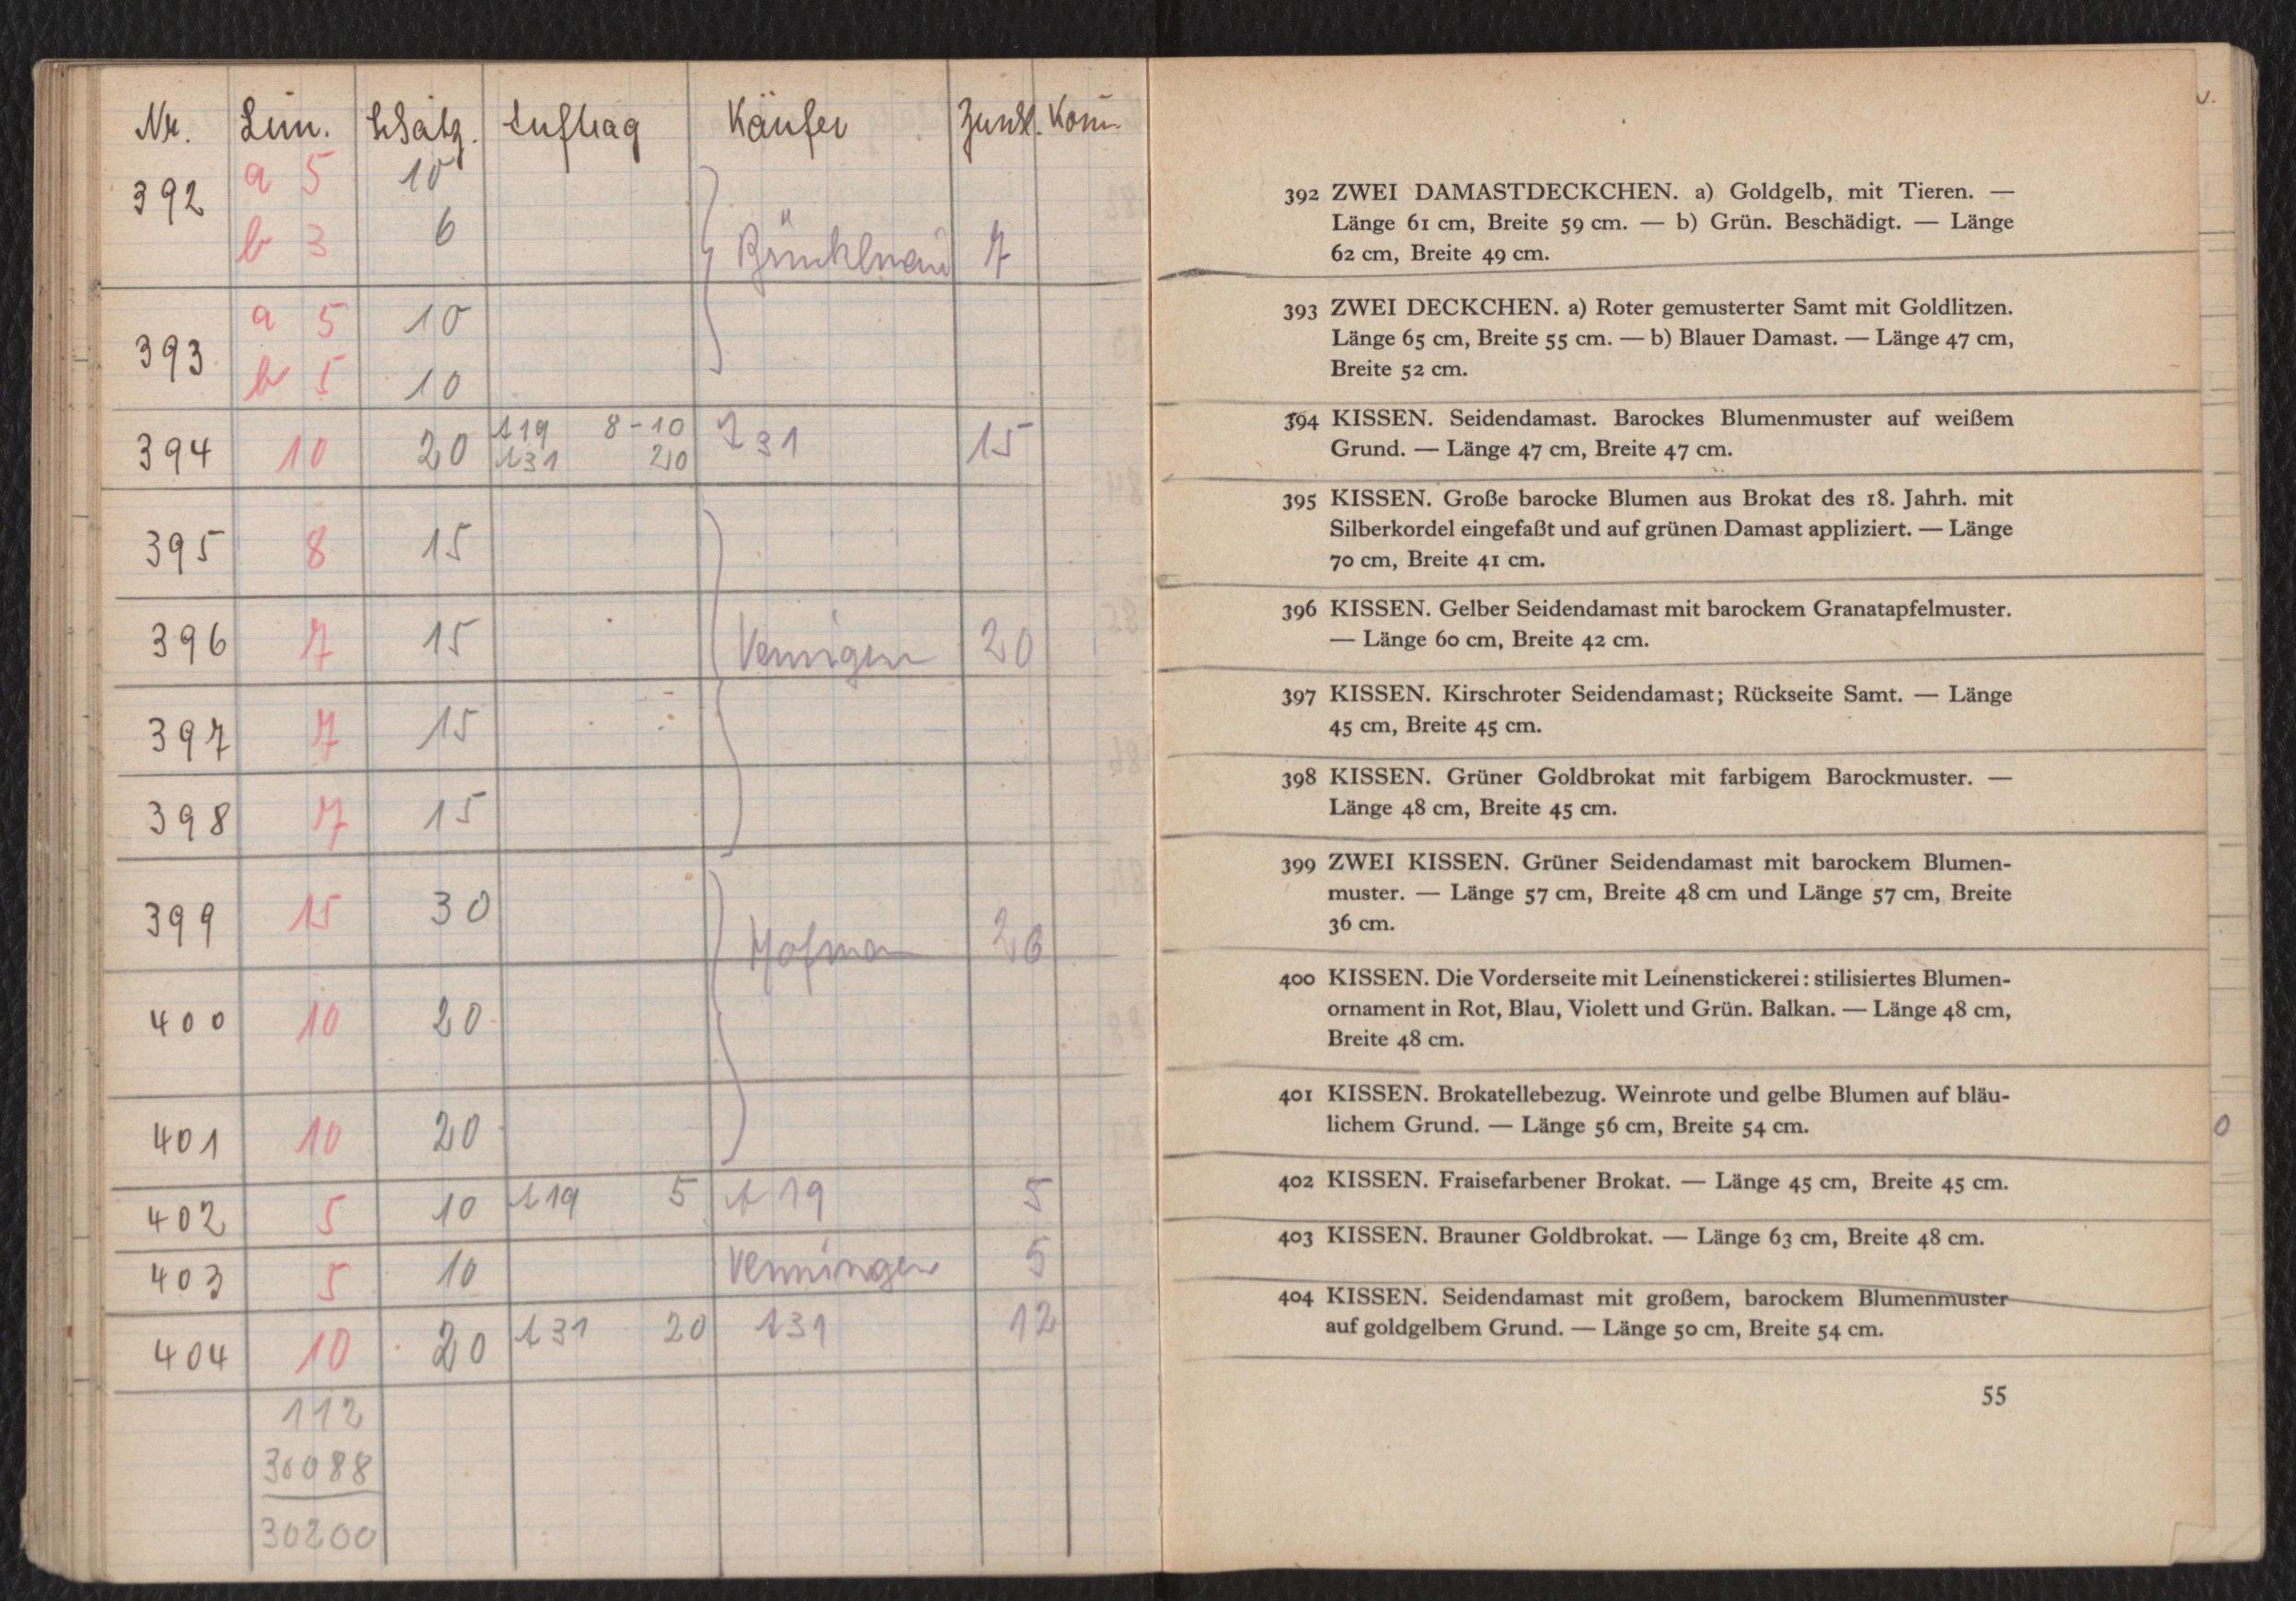 Nr. Lim. Schätz. Auftrag Käufer Zuschl. Kom.
392 a 5 10
b 3 6
7
393 a 5 10
b 5 10
394 10 20 A19 8-10 A31 15
A31 20
395 8 15
396 7 15 Venningen 20
397 7 15
398 7 15
399 15 30 Hofman 26
400 10 20
401 10 20
402 5 10 A19 5 A19 5
403 5 10 Venningen 5
404 10 20 A31 20 A31 12
112
30088
30200
392 ZWEI DAMASTDECKCHEN. a) Goldgelb, mit Tieren. —
Länge 61 cm, Breite 59 cm. — b) Grün. Beschädigt. — Länge
62 cm, Breite 49 cm.
393 ZWEI DECKCHEN. a) Roter gemusterter Samt mit Goldlitzen.
Länge 65 cm, Breite 55 cm. — b) Blauer Damast. — Länge 47 cm,
Breite 52 cm.
394 KISSEN. Seidendamast. Barockes Blumenmuster auf weißem
Grund. — Länge 47 cm, Breite 47 cm.
395 KISSEN. Große barocke Blumen aus Brokat des 18. Jahrh. mit
Silberkordel eingefaßt und auf grünen Damast appliziert. — Länge
70 cm, Breite 41 cm.
396 KISSEN. Gelber Seidendamast mit barockem Granatapfelmuster.
— Länge 60 cm, Breite 42 cm.
397 KISSEN. Kirschroter Seidendamast; Rückseite Samt. — Länge
45 cm, Breite 45 cm.
398 KISSEN. Grüner Goldbrokat mit farbigem Barockmuster. —
Länge 48 cm, Breite 45 cm.
399 ZWEI KISSEN. Grüner Seidendamast mit barockem Blumen-
muster. — Länge 57 cm, Breite 48 cm und Länge 57 cm, Breite
36 cm.
400 KISSEN. Die Vorderseite mit Leinenstickerei: stilisiertes Blumen-
ornament in Rot, Blau, Violett und Grün. Balkan. — Länge 48 cm,
Breite 48 cm.
401 KISSEN. Brokatellebezug. Weinrote und gelbe Blumen auf bläu-
lichem Grund. — Länge 56 cm, Breite 54 cm.
402 KISSEN. Fraisefarbener Brokat. — Länge 45 cm, Breite 45 cm.
403 KISSEN. Brauner Goldbrokat. — Länge 63 cm, Breite 48 cm.
404 KISSEN. Seidendamast mit großem, barockem Blumenmuster
auf goldgelbem Grund. — Länge 50 cm, Breite 54 cm.
55